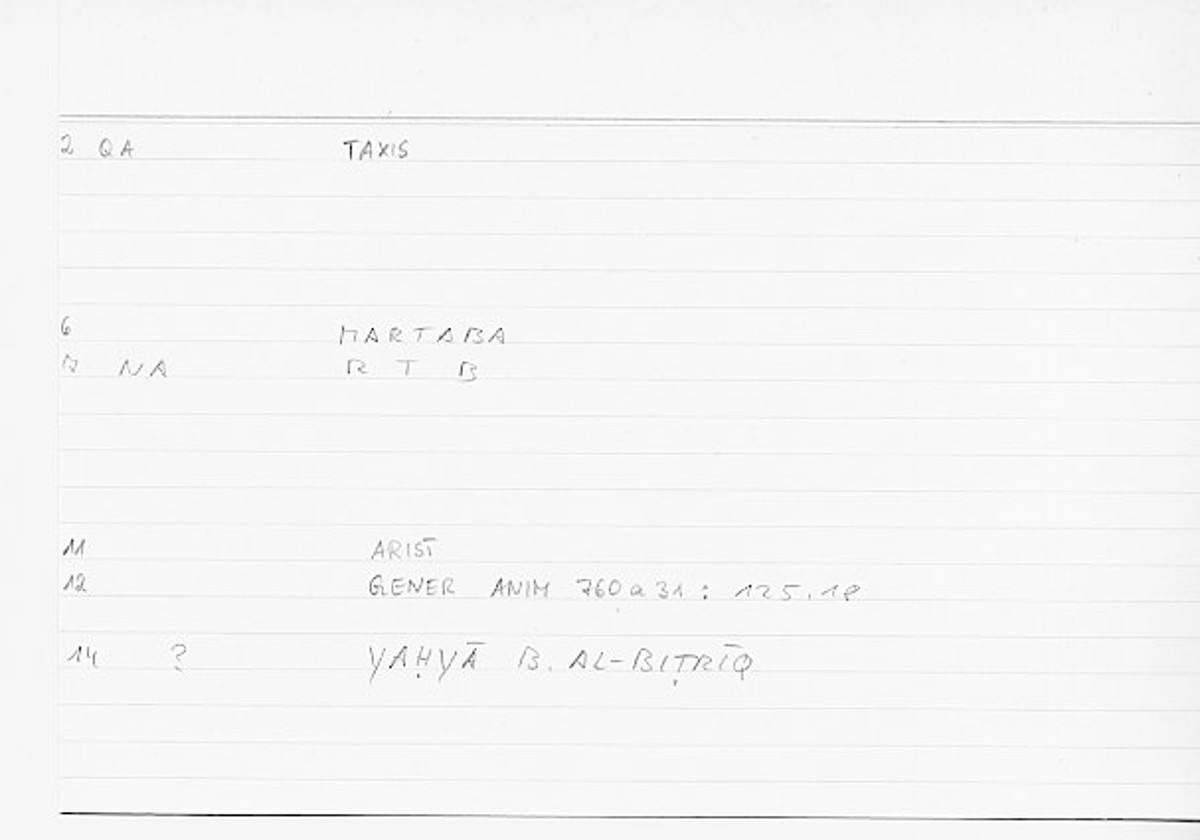 2 QA TAXIS
6 MARTABA
7 NA R T B
11 ARIST
12 GENER ANIM 760a31 : 125.18
14 ? YAḤYĀ B. AL-BIṬRĪQ